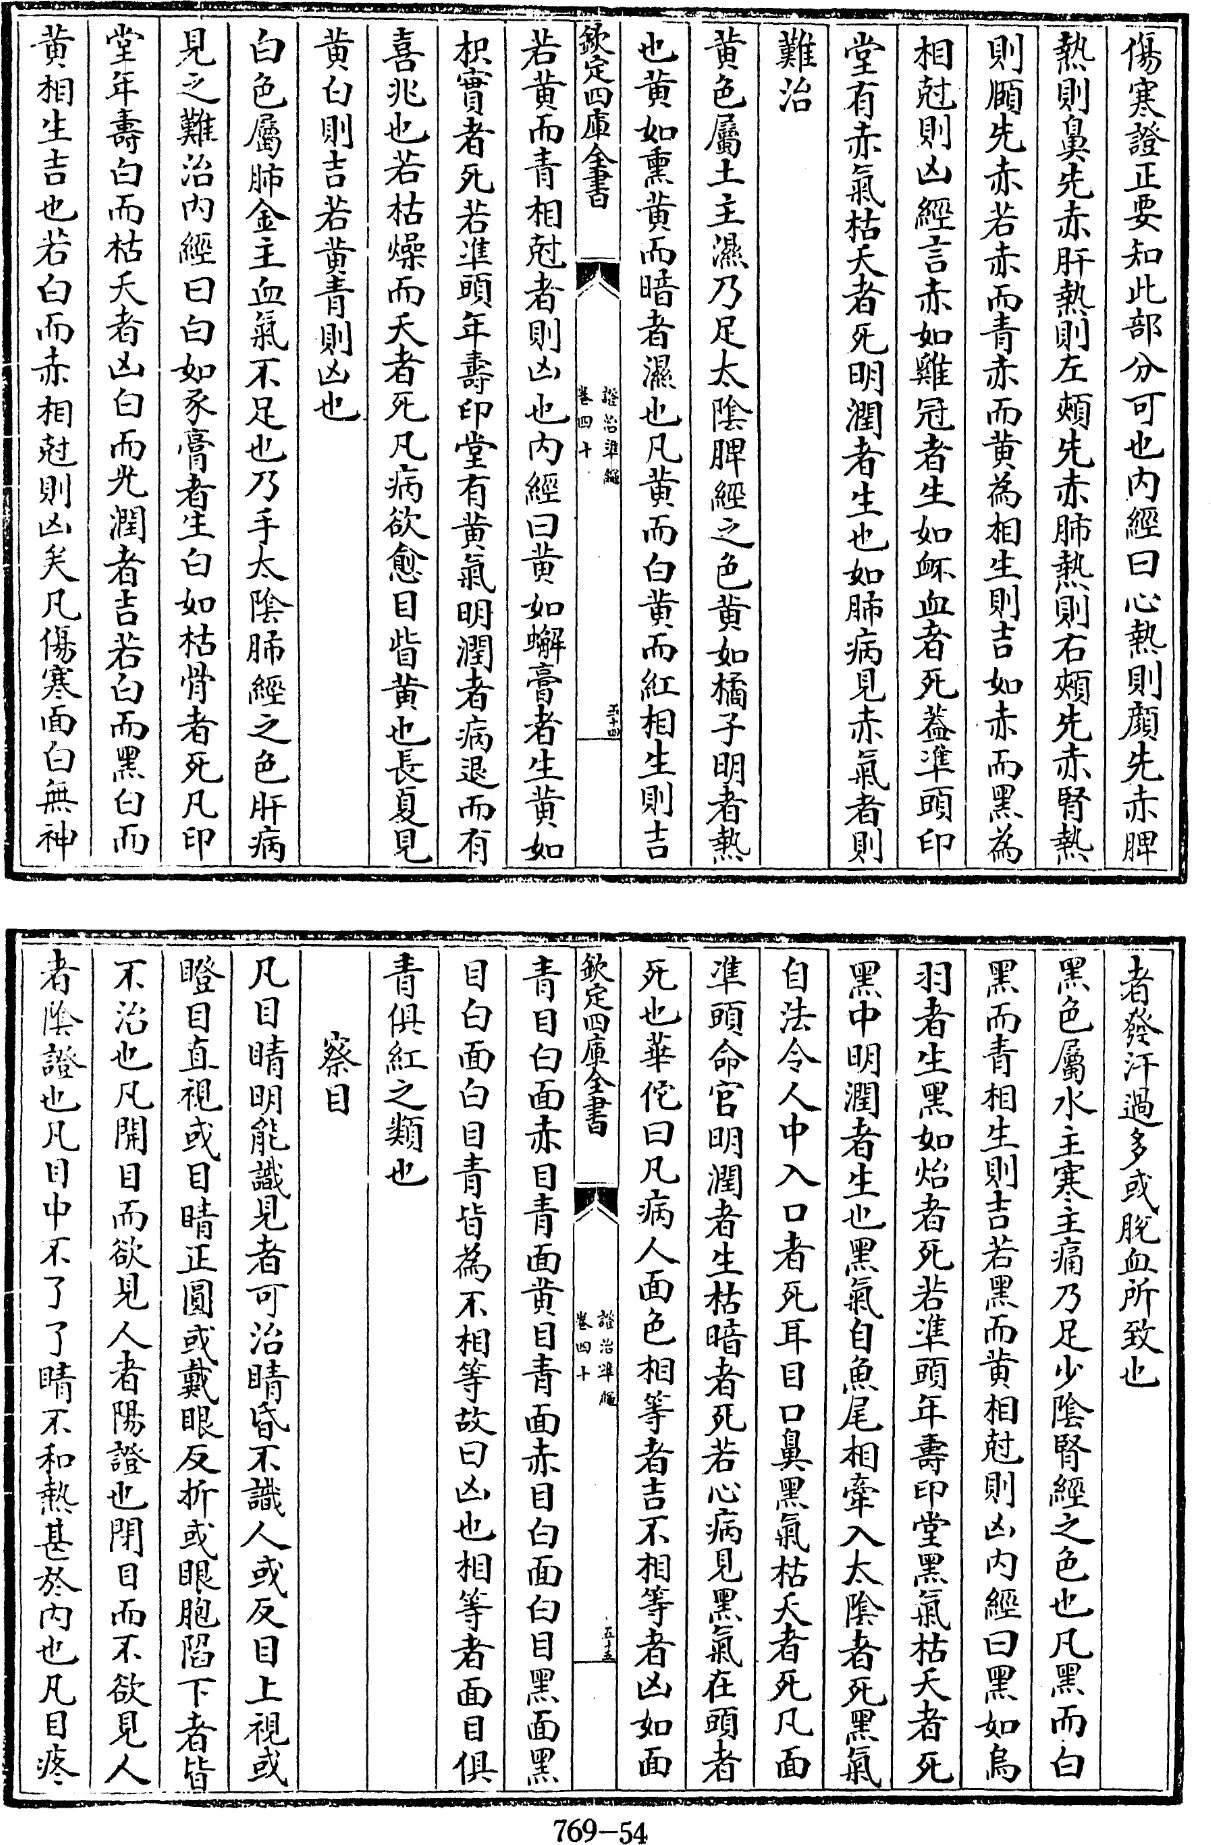 傷寒證正要知此部分可也內經曰心熱則顏先赤脾
熱則鼻先赤肝熱則左頰先赤肺熱則右頰先赤腎熱
則頤先赤若赤而青赤而黃為相生則吉如赤而黑為
相尅則凶經言赤如雞冠者生如衃血者死蓋準頭印
堂有赤氣枯夭者死明潤者生也如肺病見赤氣者則
難治
黃色屬土主濕乃足太陰脾經之色黃如橘子明者熱
也黃如熏黃而暗者濕也凡黃而白黃而紅相生則吉
欽定四庫全書
證治準繩
卷四十
五十四
若黃而青相尅者則凶也內經曰黃如蟹膏者生黃如
枳實者死若準頭年壽印堂有黃氣明潤者病退而有
喜兆也若枯燥而夭者死凡病欲愈目眥黃也長夏見
黃白則吉若黃青則凶也
白色屬肺金主血氣不足也乃手太陰肺經之色肝病
見之難治內經曰白如豕膏者生白如枯骨者死凡印
堂年壽白而枯夭者凶白而光潤者吉若白而黑白而
黃相生吉也若白而赤相尅則凶矣凡傷寒面白無神
者發汗過多或脫血所致也
黑色屬水主寒主痛乃足少陰腎經之色也凡黑而白
黑而青相生則吉若黑而黃相尅則凶內經曰黑如烏
羽者生黑如炲者死若準頭年壽印堂黑氣枯夭者死
黑中明潤者生也黑氣自魚尾相牽入太陰者死黑氣
自法令人中入口者死耳目口鼻黑氣枯夭者死凡面
準頭命宮明潤者生枯暗者死若心病見黑氣在頭者
死也華佗曰凡病人面色相等者吉不相等者凶如面
欽定四庫全書
證治準繩
卷四十
五十五
青目白面赤目青面黃目青面赤目白面白目黑面黑
目白面白目青皆為不相等故曰凶也相等者面目俱
青俱紅之類也
察目
凡目睛明能識見者可治睛昏不識人或反目上視或
瞪目直視或目睛正圓或戴眼反折或眼胞陷下者皆
不治也凡開目而欲見人者陽證也閉目而不欲見人
者陰證也凡目中不了了睛不和熱甚於內也凡目疼
769-54